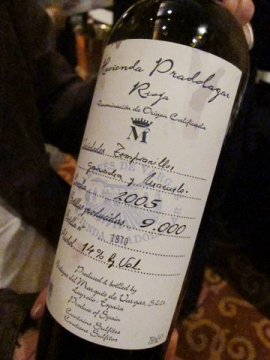 Hacienda Pradolagar
Rioja
Denominación de Origen Calificada
M
Variedades Tempranillo,
garnacha y
2005
9.000
1970
14% by Vol.
Produced & bottled by
Bodegas del Marqués de Vargas, S.A.
Logroño - España
Produce of Spain
Contiene Sulfitos
Contains Sulfites